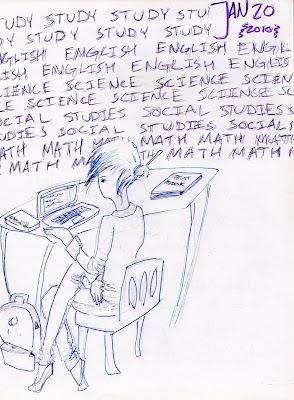 STUDY STUDY STUDY STU JAN 20
DY STUDY STUDY STUDY 2010
ENGLISH ENGLISH ENGLISH ENGLI
LISH ENGLISH ENGLISH ENGLIS
CIENCE SCIENCE SCIENCE SCIEN
CE SCIENCE SCIENCE SCIENCE SC
OCIAL STUDIES SOCIAL STUDIES S
UDIES SOCIAL STUDIES SOCIAL S
ATH MATH MATH MATH MATH MATH
MATH MATH MATH MATH MATH M